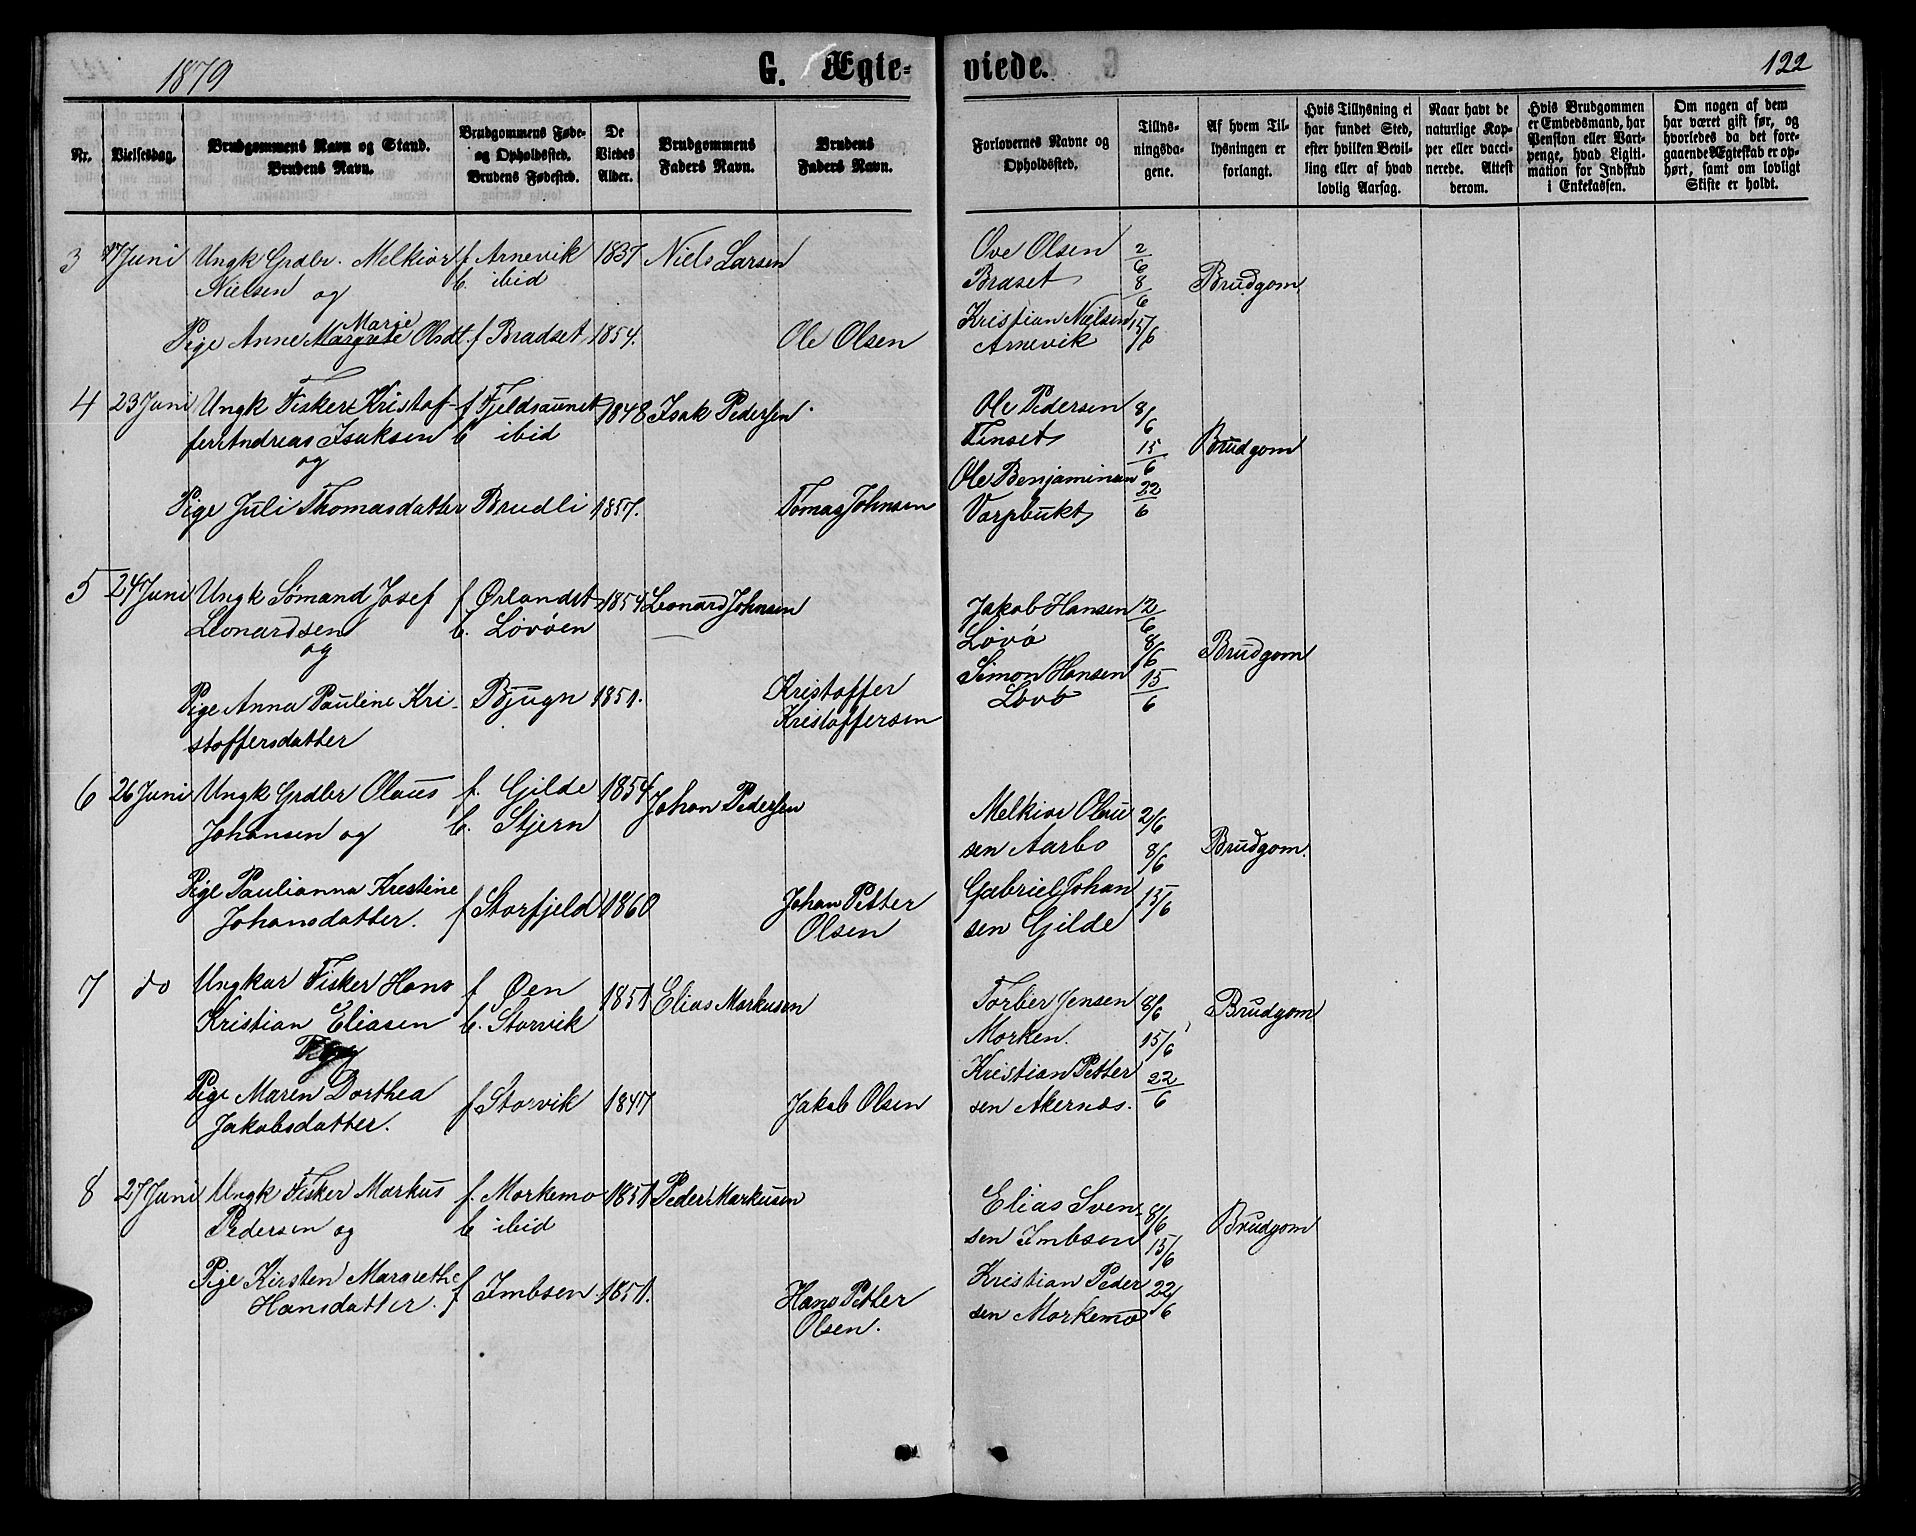 1879
G. Ægte-
viede.
122
Nr.
Vielsesdag.
Brudgommens Navn og Stand.
Brudens Navn.
Brudgommens Føde-
og Opholdssted.
Brudens Fødested.
De
Viedes
Alder.
Brudgommens
Faders Navn.
Brudens
Faders Navn.
Forlovernes Navne og
Opholdssted.
Tillys-
ningsda-
gene.
Af hvem Til-
lysningen er
forlangt.
Hvis Tillysning ei
har fundet Sted,
efter hvilken Bevil-
ling eller af hvad
lovlig Aarsag.
Naar havt de
naturlige Kop-
per eller vacci-
nerede. Attest
derom.
Hvis Brudgommen
er Embedsmand, har
Pension eller Vart-
penge, hvad Ligiti-
mation for Indskud
i Enkekassen.
Om nogen af dem
har været gift før, og
hvorledes da det fore-
gaaende Ægteskab er op-
hørt, samt om lovligt
Skifte er holdt.
3 17 Juni Ungk Grdbr. Melkior f Arnevik 1837 Niels Larsen
Nielsen og b. ibid
Marie
Pige Anne Margrete Olsdt. f Bradset 1854. Ole Olsen
Ove Olsen 2/6
Braset 8/6 Brudgom
Kristian Nielsen 15/6
Arnevik
4 23 Juni Ungk Fisker Kristof- f Fjeldsaunet 1848 Isak Pedersen
fer Andreas Isaksen b ibid
og
Pige Juli Thomasdatter Brudli 1857. Tomas Johnsen
Ole Pedersen 8/6
Finset 15/6 Brudgom
Ole Benjaminsen 22/6
Varpbukt
5 24 Juni Ungk Sømand Josef f Ørlandet 1854 Leonard Johnsen
Leonardsen b. Lovøen
og
Pige Anna Pauline Kri- Bjugn 1851. Kristoffer
stoffersdatter Kristoffersen
Jakob Hansen 2/6
Lovø 8/6 Brudgom
Simon Hansen 15/6
Lovø
6 26 Juni Ungk Grdbr Olaus f. Gilde 1854 Johan Pedersen
Johansen og b. Stjern
Pige Paulianna Krestine
Johansdatter. f Storfjeld 1860 Johan Petter
Olsen
Melkior Olau 2/6
sen Aarbo 8/6 Brudgom.
Gabriel Johan 15/6
sen Gilde
7 do Ungkar Fisker Hans f Øen 1851 Elias Markusen
Kristian Eliasen b. Storvik
og
Pige Maren Dorthea f Storvik 1847 Jakob Olsen
Jakobsdatter.
Torber Jensen 8/6 Brudgom
Morken. 15/6
Kristian Petter 22/6
sen Akernæs.
8 27 Juni Ungk Fisker Markus f. Morkemo 1851 Peder Markusen
Pedersen og b ibid
Pige Kirsten Margrethe f Imbsen 1851. Hans Petter
Hansdatter. Olsen.
Elias Sven- 8/6
sen Imbsen 15/6 Brudgom
Kristian Peder 22/6
sen Morkemo